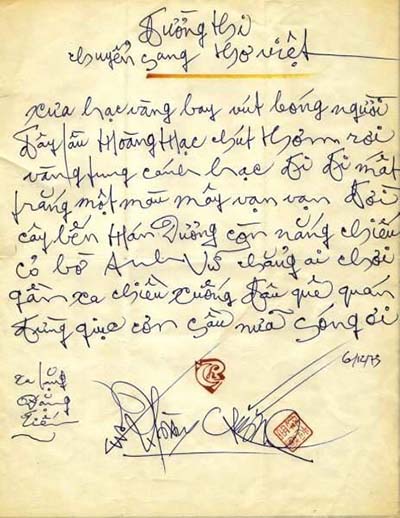 Đường thi
chuyển sang thơ việt
xưa hạc vàng bay vút bóng người
đây lầu Hoàng Hạc chút thơm rơi
vàng tung cánh hạc đi đi mất
trắng một màu mây vạn vạn đời
cây bến Hán Dương còn nắng chiếu
cỏ bờ Anh Vũ chẳng ai chơi
gần xa chiều xuống đâu quê quán
đừng giục cơn sầu nữa sóng ơi
6/12/73
tặng
Đặng
Tiến
Vũ Hoàng Chương